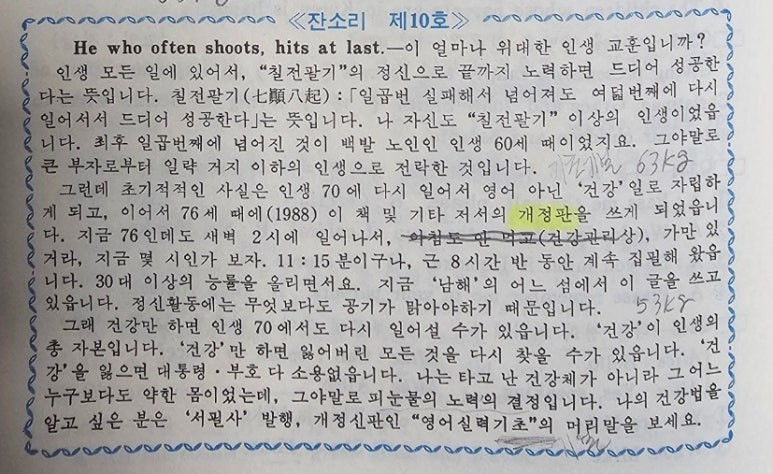 ≪잔소리 제10호≫
He who often shoots, hits at last.—이 얼마나 위대한 인생 교훈입니까?
인생 모든 일에 있어서, “칠전팔기”의 정신으로 끝까지 노력하면 드디어 성공한
다는 뜻입니다. 칠전팔기(七顚八起) :「일곱번 실패해서 넘어져도 여덟번째에 다시
일어서서 드디어 성공한다」는 뜻입니다. 나 자신도 “칠전팔기” 이상의 인생이었읍
니다. 최후 일곱번째에 넘어진 것이 백발 노인인 인생 60세 때이었지요. 그야말로
큰 부자로부터 일략 거지 이하의 인생으로 전락한 것입니다. 63kg
그런데 초기적적인 사실은 인생 70에 다시 일어서 영어 아닌 ‘건강’일로 자립하
게 되고, 이어서 76세 때에(1988) 이 책 및 기타 저서의 개정판을 쓰게 되었읍니
다. 지금 76인데도 새벽 2시에 일어나서, 아침도 안 먹고(건강관리상), 가만 있
거라, 지금 몇 시인가 보자. 11:15분이구나, 근 8시간 반 동안 계속 집필해 왔읍
니다. 30대 이상의 능률을 올리면서요. 지금 ‘남해’의 어느 섬에서 이 글을 쓰고
있읍니다. 정신활동에는 무엇보다도 공기가 맑아야하기 때문입니다. 53kg
그래 건강만 하면 인생 70에서도 다시 일어설 수가 있읍니다. ‘건강’이 인생의
총 자본입니다. ‘건강’만 하면 잃어버린 모든 것을 다시 찾을 수가 있읍니다. ‘건
강’을 잃으면 대통령·부호 다 소용없읍니다. 나는 타고 난 건강체가 아니라 그 어느
누구보다도 약한 몸이었는데, 그야말로 피눈물의 노력의 결정입니다. 나의 건강법을
알고 싶은 분은 ‘서필사’ 발행, 개정신판인 “영어실력기초”의 머리말을 보세요.